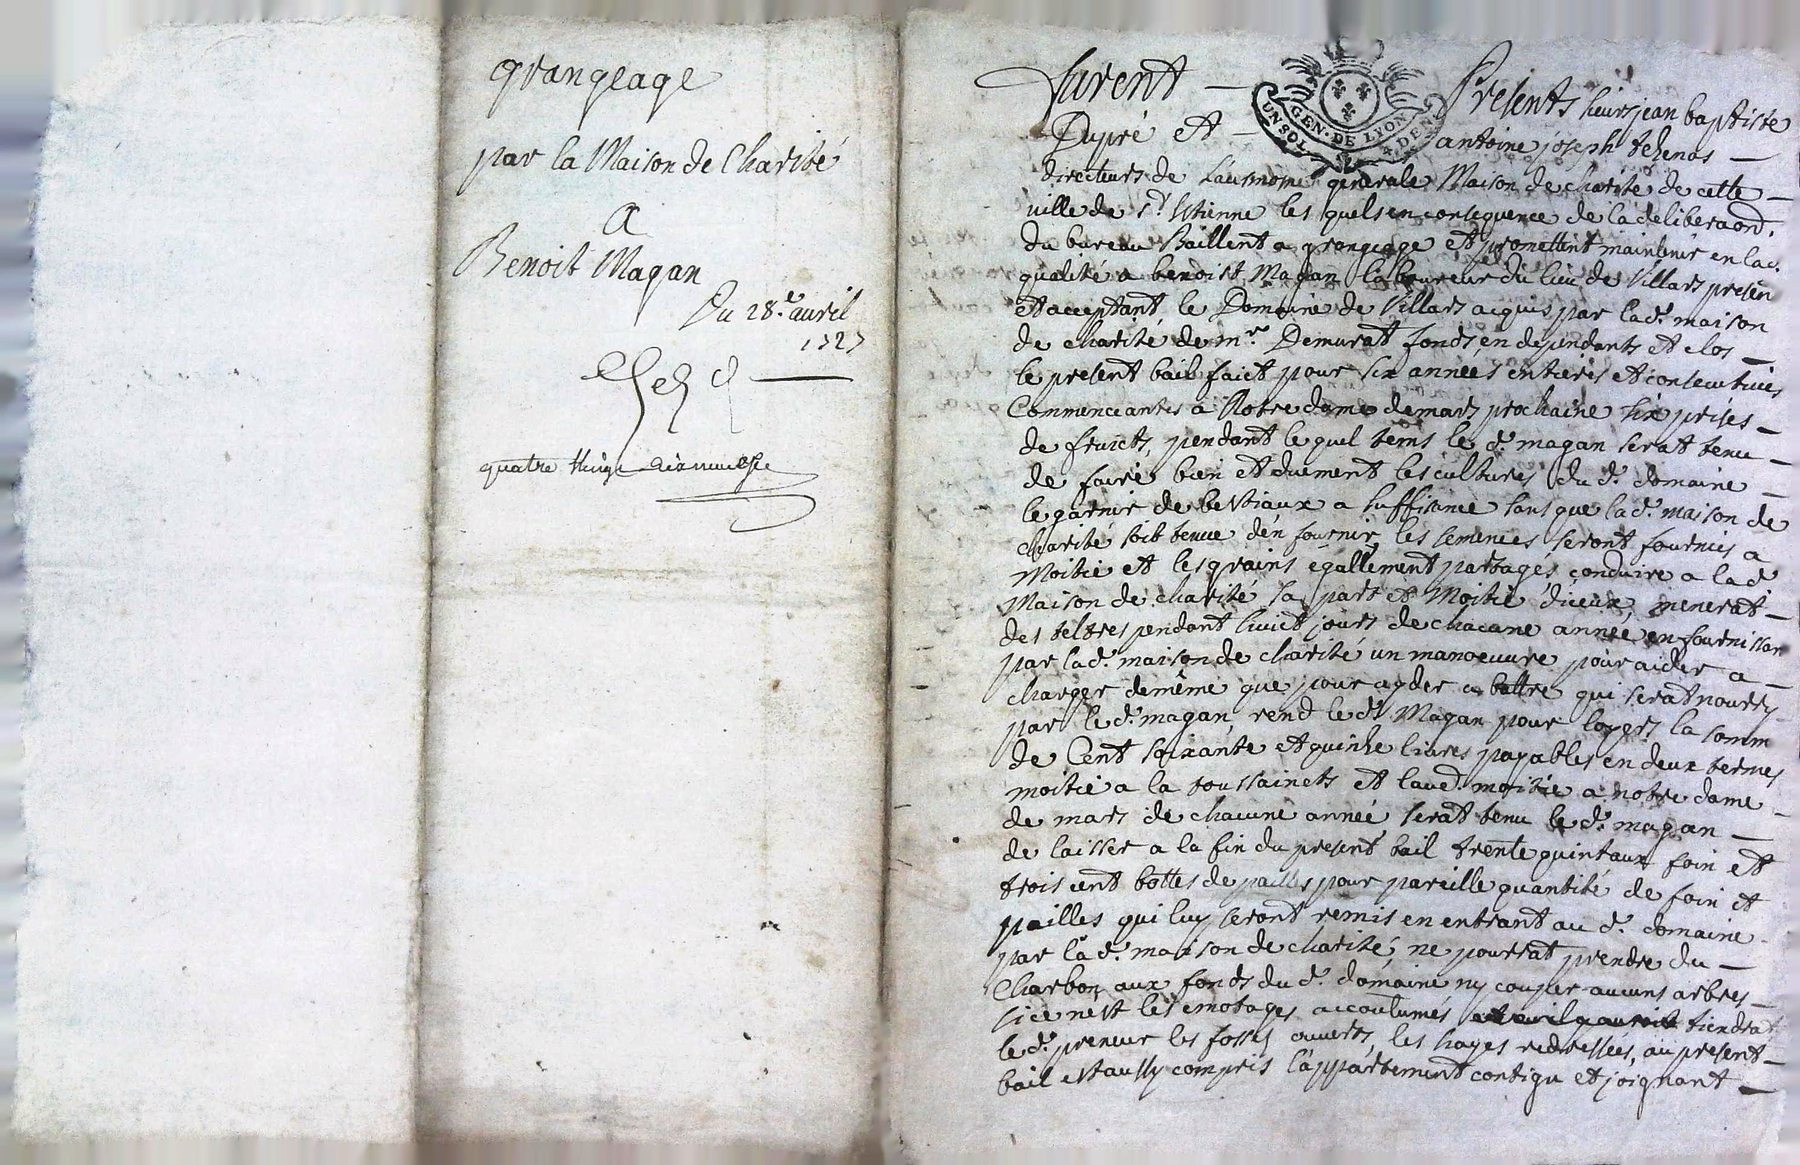 grangeage
par la Maison de Charité
A
Benoit Magan
Du 28.e avril
1727
quatre
furent — Presents sieurs jean baptiste
Dupré et — antoine joseph thenas —
GEN. DE LYON
UN SOL 4 DEN
directeurs de L'aumone generale Maison de charité de cette —
ville de st Estienne les quels en consequence de la deliberaon.
du bureau Baillent a grangeage et promettent maintenir en lad.
qualité a benoist Magan laboureur du lieu de Villars presen
et acceptant le Domaine de Villars acquis par lad. maison
de charité de mr. Demurat fonds en dependants et clos —
le present bail faict pour six années entieres et consecutives
Commenceantes a Notre dame de mars prochaine six prises —
de fruicts, pendant lequel tems le d. magan serat tenu —
de faire bien et duement les cultures du d. domaine —
le garnir de bestiaux a suffisance sans que lad. maison de
charité soit tenue d'en fournir, les semences seront fournies a
Moitié et les grains egallement partagés, conduire a lad
Maison de charité sa part et Moitié d'iceux, menerat —
des pendant huict jours de chacune année en fournissan
par lad. maison de charité un manoeuvre pour aider a —
charger de même que pour ayder a battre qui serat nourry
par le d. magan, rend le d. Magan pour loyers la somm
de Cent soixante et quinze livres payables en deux termes
moitié a la toussaincts et laud. moitié a notre dame
de mars de chacune année serat tenu le d. magan —
de laisser a la fin du present bail trente quintaux foin et
trois cent bottes de pailles pour pareille quantité de foin et
pailles qui luy seront remis en entrant au d. domaine
par lad. maison de charité, ne pourrat prendre du —
Charbon aux fonds du d. domaine ny couper aucuns arbres —
si ce n'est les emotages accoutumés tiendrat
le d. preneur les fossés ouverts, les hayes redressées, au present —
bail est aussy compris l'appartement contigu et joignant —